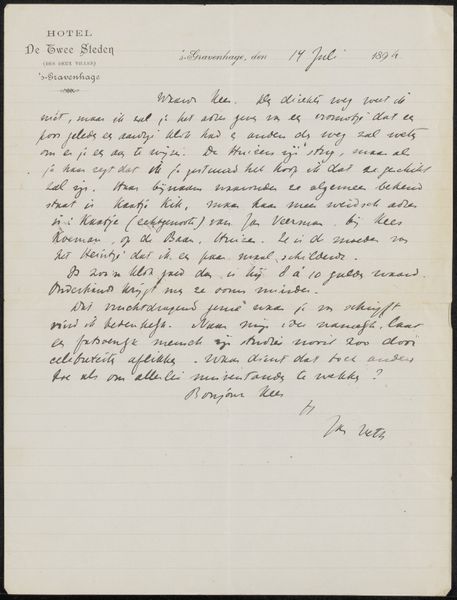 HOTEL
De Twee Steden
(DES DEUX VILLES)
's-Gravenhage
's-Gravenhage, den 14 Juli 1894
Waarde Kees. De directe weg weet ik
niet, maar ik zal je het adres geven van een vrouwtje dat er
poos geleden een aardige klok had en anders de weg zal weten
om er je een aan te wijzen. De Huizers zijn stug, maar als
je haar zegt dat ik je gestuurd heb hoop ik dat ze geschikt
zal zijn. Haar bijnaam waaronder ze algemeen bekend
staat is Kaatje Kik, maar haar meer weidsch adres
is: Kaatje (echtgenoote) van Jan Veerman bij Kees
op de Baan, Huizen. Ze is de moeder van
het Heintje dat ik een paar maal schilderde.
Is zoo'n klok goed dan is hij 8 à 10 gulden waard.
Onderhands krijgt men ze soms minder.
Dat vruchtdragend genie waar je van schrijft
vind ik bedenkelijk. Naar mijn idee namelijk, laat
een fatsoenlijk mensch zijn studies nooit zoo door
celebriteits aflikken. Waar dient dat toch anders
toe als om allerlei misverstanden te wekken?
Bonjour Kees
Jan Veth